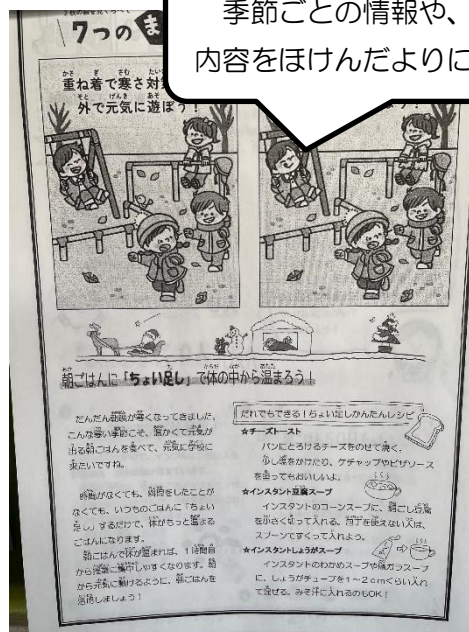 季節ごとの情報や、
内容をほけんだよりに
7つのま
重ね着で寒さ対
外で元気に遊ぼう！
朝ごはんに「ちょい足し」で体の中から温まろう！
だんだん朝晩が寒くなってきました。
こんな寒い季節こそ、温かくて元気が
出る朝ごはんを食べて、元気に学校に
来たいですね。
時間がなくても、料理をしたことが
なくても、いつものごはんに「ちょい
足し」するだけで、体がもっと温まる
ごはんになります。
朝ごはんで体が温まれば、1時間目
から授業に集中しやすくなります。朝
から元気に動けるように、朝ごはんを
活用しましょう！
だれでもできる！ちょい足しかんたんレシピ
☆チーズトースト
パンにとろけるチーズをのせて焼く。
少し塩をかけたり、ケチャップやピザソース
を塗ってもおいしいよ。
☆インスタント豆腐スープ
インスタントのコーンスープに、絹ごし豆腐
を小さく切って入れる。包丁を使えない人は、
スプーンですくって入れよう。
☆インスタントしょうがスープ
インスタントのわかめスープや鶏ガラスープ
に、しょうがチューブを1～2cmくらい入れ
て混ぜる。みそ汁に入れるのもOK！